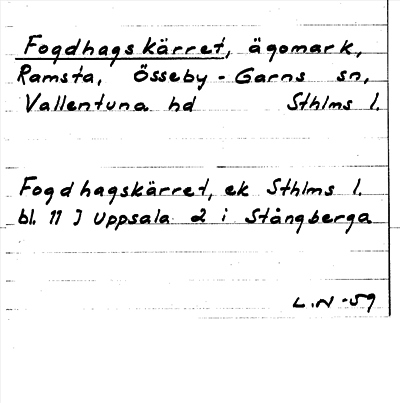 Fogdhagskärret, ägomark,
Ramsta, Össeby-Garns sn,
Vallentuna hd Sthlms l.
Fogdhagskärret, ek Sthlms l.
bl. 11 J Uppsala 2 i Stångberga
L.N-59